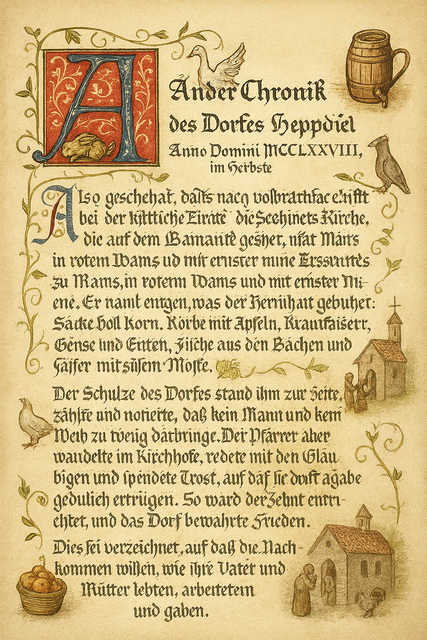 A
Ander Chronik
des Dorfes Heppdiel
Anno Domini MCCLXXVIII,
im Herbste
Also geschehat, daſts nacq
bei der die Kirche,
die auf dem geshet, Mains
in rotem Wams ud mit ernster mine
zu Mams, in rotem Wams und mit ernster Mi-
ene. Er namt entgen, was der Herrnhait gebuhet:
Säcke voll Korn, Körbe mit Apfeln,
Gense und Enten, Fiſche aus den Bächen und
Fäſſer mit süſsem Moſte.
Der Schulze des Dorfes stand ihm zur Seite,
zählte und notierte, daß kein Mann und kein
Weib zu wenig darbringe. Der Pfarrer aber
wandelte im Kirchhofe, redete mit den Gläu
bigen und spendete Trost, auf daß sie
gedulich ertrügen. So ward der Zehnt entri-
chtet, und das Dorf bewahrte Frieden.
Dies sei verzeichnet, auf daß die Nach-
kommen wissen, wie ihre Väter und
Mütter lebten, arbeitetem
und gaben.